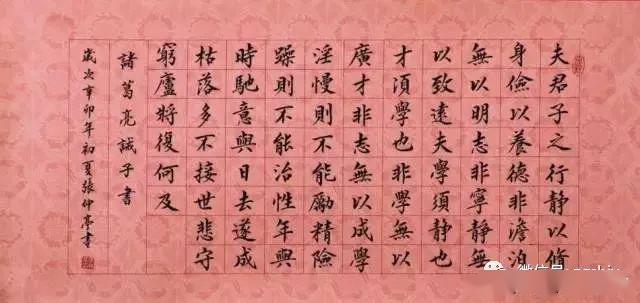 夫君子之行静以脩
身儉以養德非澹泊
無以明志非寧静無
以致遠夫學須静也
才須學也非學無以
廣才非志無以成學
淫慢則不能勵精險
躁則不能治性年與
時馳意與日去遂成
枯落多不接世悲守
窮廬將復何及
諸葛亮誡子書
歲次辛卯年初夏張仲亭書
微信号